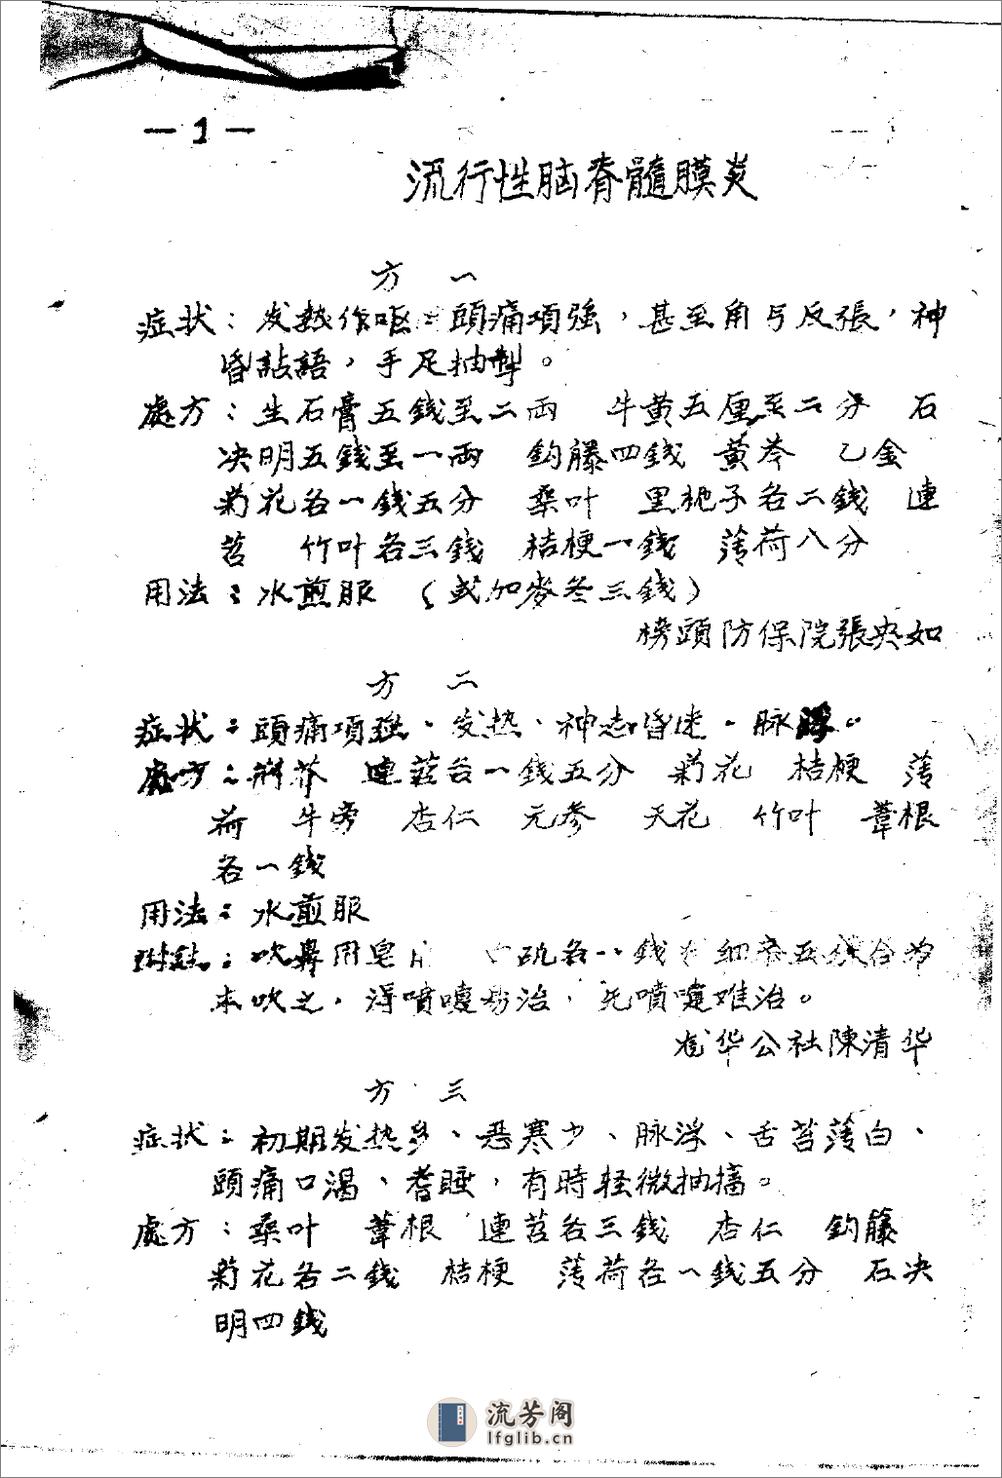 — 1 —
流行性脑脊髓膜炎
方 一
症状：发热作呕 頭痛項強，甚至角弓反張，神
昏詀語，手足抽掣。
處方：生石膏五錢至二両 牛黄五厘至二分 石
决明五錢至一両 鈎藤四錢 黄芩 乙金
菊花各一錢五分 桑叶 黑栀子各二錢 連
苕 竹叶各三錢 桔梗一錢 薄荷八分
用法：水煎服 （或加麥冬三錢）
榜頭防保院張央如
方 二
症状：頭痛項强、发热、神志昏迷、脉浮。
處方：荆芥 連苕各一錢五分 菊花 桔梗 薄
荷 牛旁 杏仁 元参 天花 竹叶 葦根
各一錢
用法：水煎服
吹鼻用皂 矾各一錢 細辛五 合为
末吹之，得噴嚏易治，无噴嚏难治。
龙华公社陳清华
方 三
症状：初期发热多、恶寒少、脉浮、舌苔薄白、
頭痛口渴、耆睡，有時轻微抽搐。
處方：桑叶 葦根 連苕各三錢 杏仁 鈎籐
菊花各二錢 桔梗 薄荷各一錢五分 石决
明四錢
流芳阁
lfglib.cn